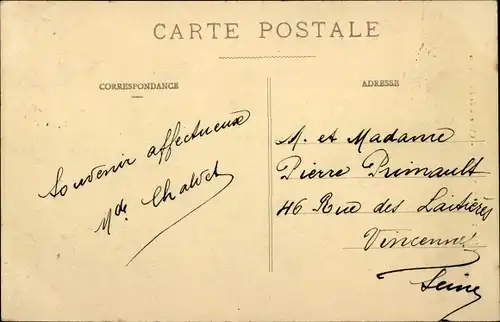 CARTE POSTALE
CORRESPONDANCE
ADRESSE
Souvenir affectueux
Mde Chalvet
M. et Madame
Pierre Primault
46 Rue des Laitières
Vincennes
Seine